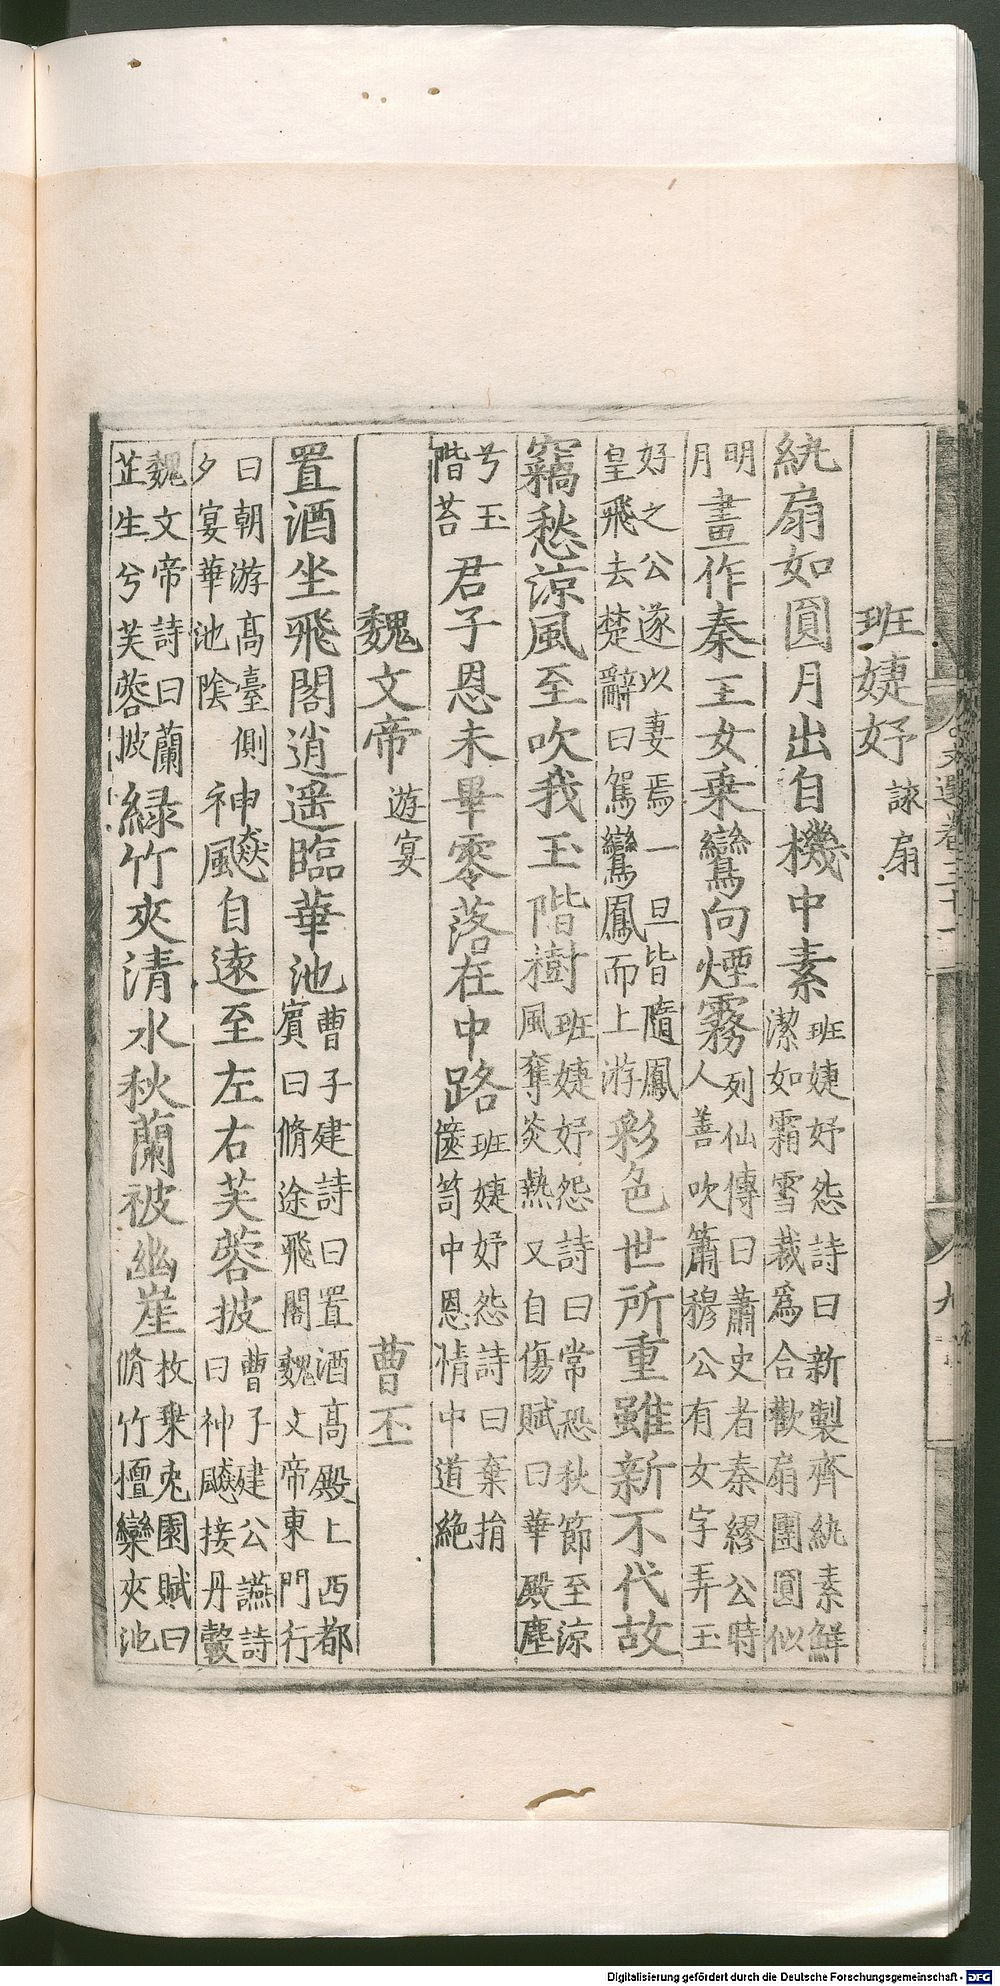 文選卷三十一
九
班婕妤 詠扇
紈扇如圓月出自機中素班婕妤怨詩曰新製齊紈素鮮潔如霜雪裁爲合歡扇團圓似
明月畫作秦王女乗鸞向煙霧列仙傳曰蕭史者秦繆公時人善吹簫穆公有女字弄玉
好之公遂以妻焉一旦皆隨鳳皇飛去楚辭曰駕鸞鳳而上游彩色世所重雖新不代故
竊愁涼風至吹我玉階樹班婕妤怨詩曰常恐秋節至涼風奪炎熱又自傷賦曰華殿塵
兮玉階苔君子恩未畢零落在中路班婕妤怨詩曰棄捐篋笥中恩情中道絶
魏文帝 遊宴 曹丕
置酒坐飛閣逍遥臨華池曹子建詩曰置酒高殿上西都賓曰脩途飛閣魏文帝東門行
曰朝游高臺側夕宴華池陰神飈自遠至左右芙蓉披曹子建公讌詩曰神飈接丹轂
魏文帝詩曰蘭芷生兮芙蓉披緑竹夾清水秋蘭被幽崖枚乗兎園賦曰脩竹檀欒夾池
Digitalisierung gefördert durch die Deutsche Forschungsgemeinschaft - DFG